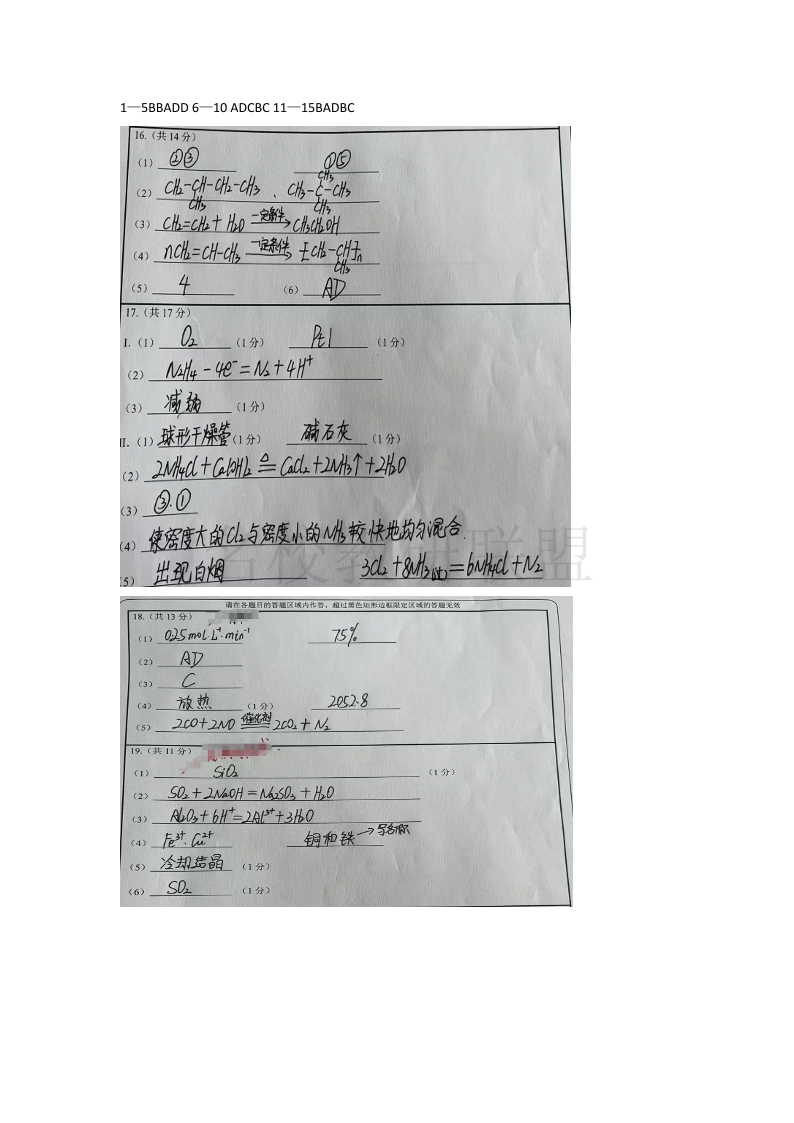 1—5BBADD 6—10 ADCBC 11—15BADBC
16.（共 14 分）
（1） ②③ ①⑤
（2） CH₂-CH-CH₂-CH₃ 、 CH₃-C-CH₃
CH₃ CH₃ CH₃
（3） CH₂=CH₂+H₂O 一定条件→ CH₃CH₂OH
（4） nCH₂=CH-CH₃ 一定条件→ [CH₂-CH]n
CH₃
（5） 4 （6） AD
17.（共 17 分）
I.（1） O₂ （1 分） Pt1 （1 分）
（2） N₂H₄-4e⁻=N₂+4H⁺
（3） 减弱 （1 分）
II.（1） 球形干燥管 （1 分） 碱石灰 （1 分）
（2） 2NH₄Cl+Ca(OH)₂ ≜ CaCl₂+2NH₃↑+2H₂O
（3） ③.①
（4） 使密度大的Cl₂与密度小的NH₃较快地均匀混合.
（5） 出现白烟 3Cl₂+8NH₃=6NH₄Cl+N₂
名校教研联盟
请在各题目的答题区域内作答，超过黑色矩形边框限定区域的答题无效
18.（共 13 分）
（1） 0.25mol·L⁻¹·min⁻¹ 75%
（2） AD
（3） C
（4） 放热 （1 分） 2052.8
（5） 2CO+2NO 催化剂= 2CO₂+N₂
19.（共 11 分）
（1） SiO₂ （1 分）
（2） SO₂+2NaOH=Na₂SO₃+H₂O
（3） Al₂O₃+6H⁺=2Al³⁺+3H₂O
（4） Fe³⁺.Cu²⁺ 铜和铁→写名称
（5） 冷却结晶 （1 分）
（6） SO₂ （1 分）